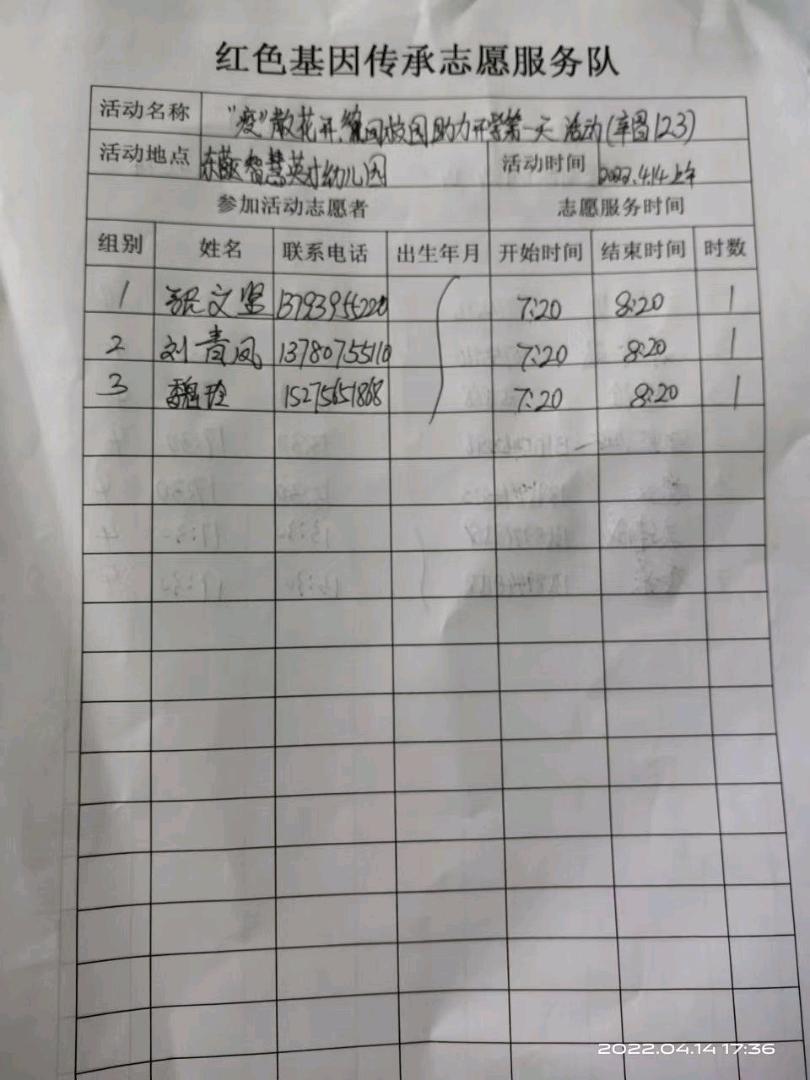 红色基因传承志愿服务队
活动名称 "疫"散花开, 返校园助力开学第一天 活动(辛昌123)
活动地点 智慧英才幼儿园 活动时间 2022.4.14上午
参加活动志愿者 志愿服务时间
组别 姓名 联系电话 出生年月 开始时间 结束时间 时数
1 文坚 13793955220 7:20 8:20 1
2 刘青凤 13780755110 7:20 8:20 1
3 魏玲 15275651868 7:20 8:20 1
2022.04.14 17:36